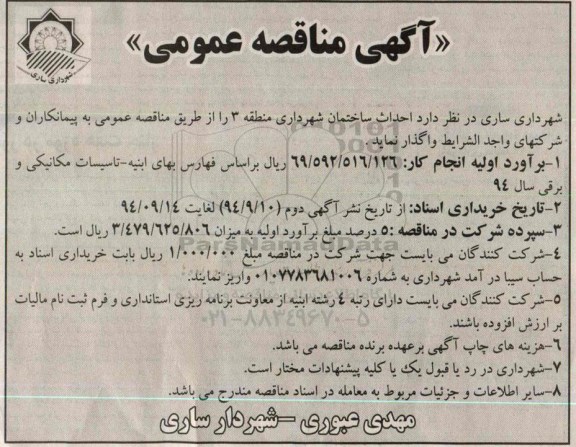 «آگهی مناقصه عمومی»
شهرداری ساری
شهرداری ساری در نظر دارد احداث ساختمان شهرداری منطقه ۳ را از طریق مناقصه عمومی به پیمانکاران و
شرکتهای واجد الشرایط واگذار نماید
۱-برآورد اولیه انجام کار: ۶۹/۵۹۲/۵۱۶/۱۲۶ ریال براساس فهارس بهای ابنیه-تاسیسات مکانیکی و
برقی سال ۹۴
۲-تاریخ خریداری اسناد: از تاریخ نشر آگهی دوم (۹۴/۹/۱۰) لغایت ۹۴/۰۹/۱۴
۳-سپرده شرکت در مناقصه :۵ درصد مبلغ برآورد اولیه به میزان ۳/۴۷۹/۶۲۵/۸۰۶ ریال است.
۴-شرکت کنندگان می بایست جهت شرکت در مناقصه مبلغ ۱/۰۰۰/۰۰۰ ریال بابت خریداری اسناد به
حساب سیبا در آمد شهرداری به شماره ۰۱۰۷۷۸۳۶۸۱۰۰۶ واریز نمایند.
۵-شرکت کنندگان می بایست دارای رتبه ۴ رشته ابنیه از معاونت برنامه ریزی استانداری و فرم ثبت نام مالیات
بر ارزش افزوده باشند.
۶-هزینه های چاپ آگهی برعهده برنده مناقصه می باشد.
۷-شهرداری در رد یا قبول یک یا کلیه پیشنهادات مختار است.
۸-سایر اطلاعات و جزئیات مربوط به معامله در اسناد مناقصه مندرج می باشد.
مهدی عبوری -شهردار ساری
ParsNamadData
۰۲۱-۸۸۳۴۹۶۷۰-۵